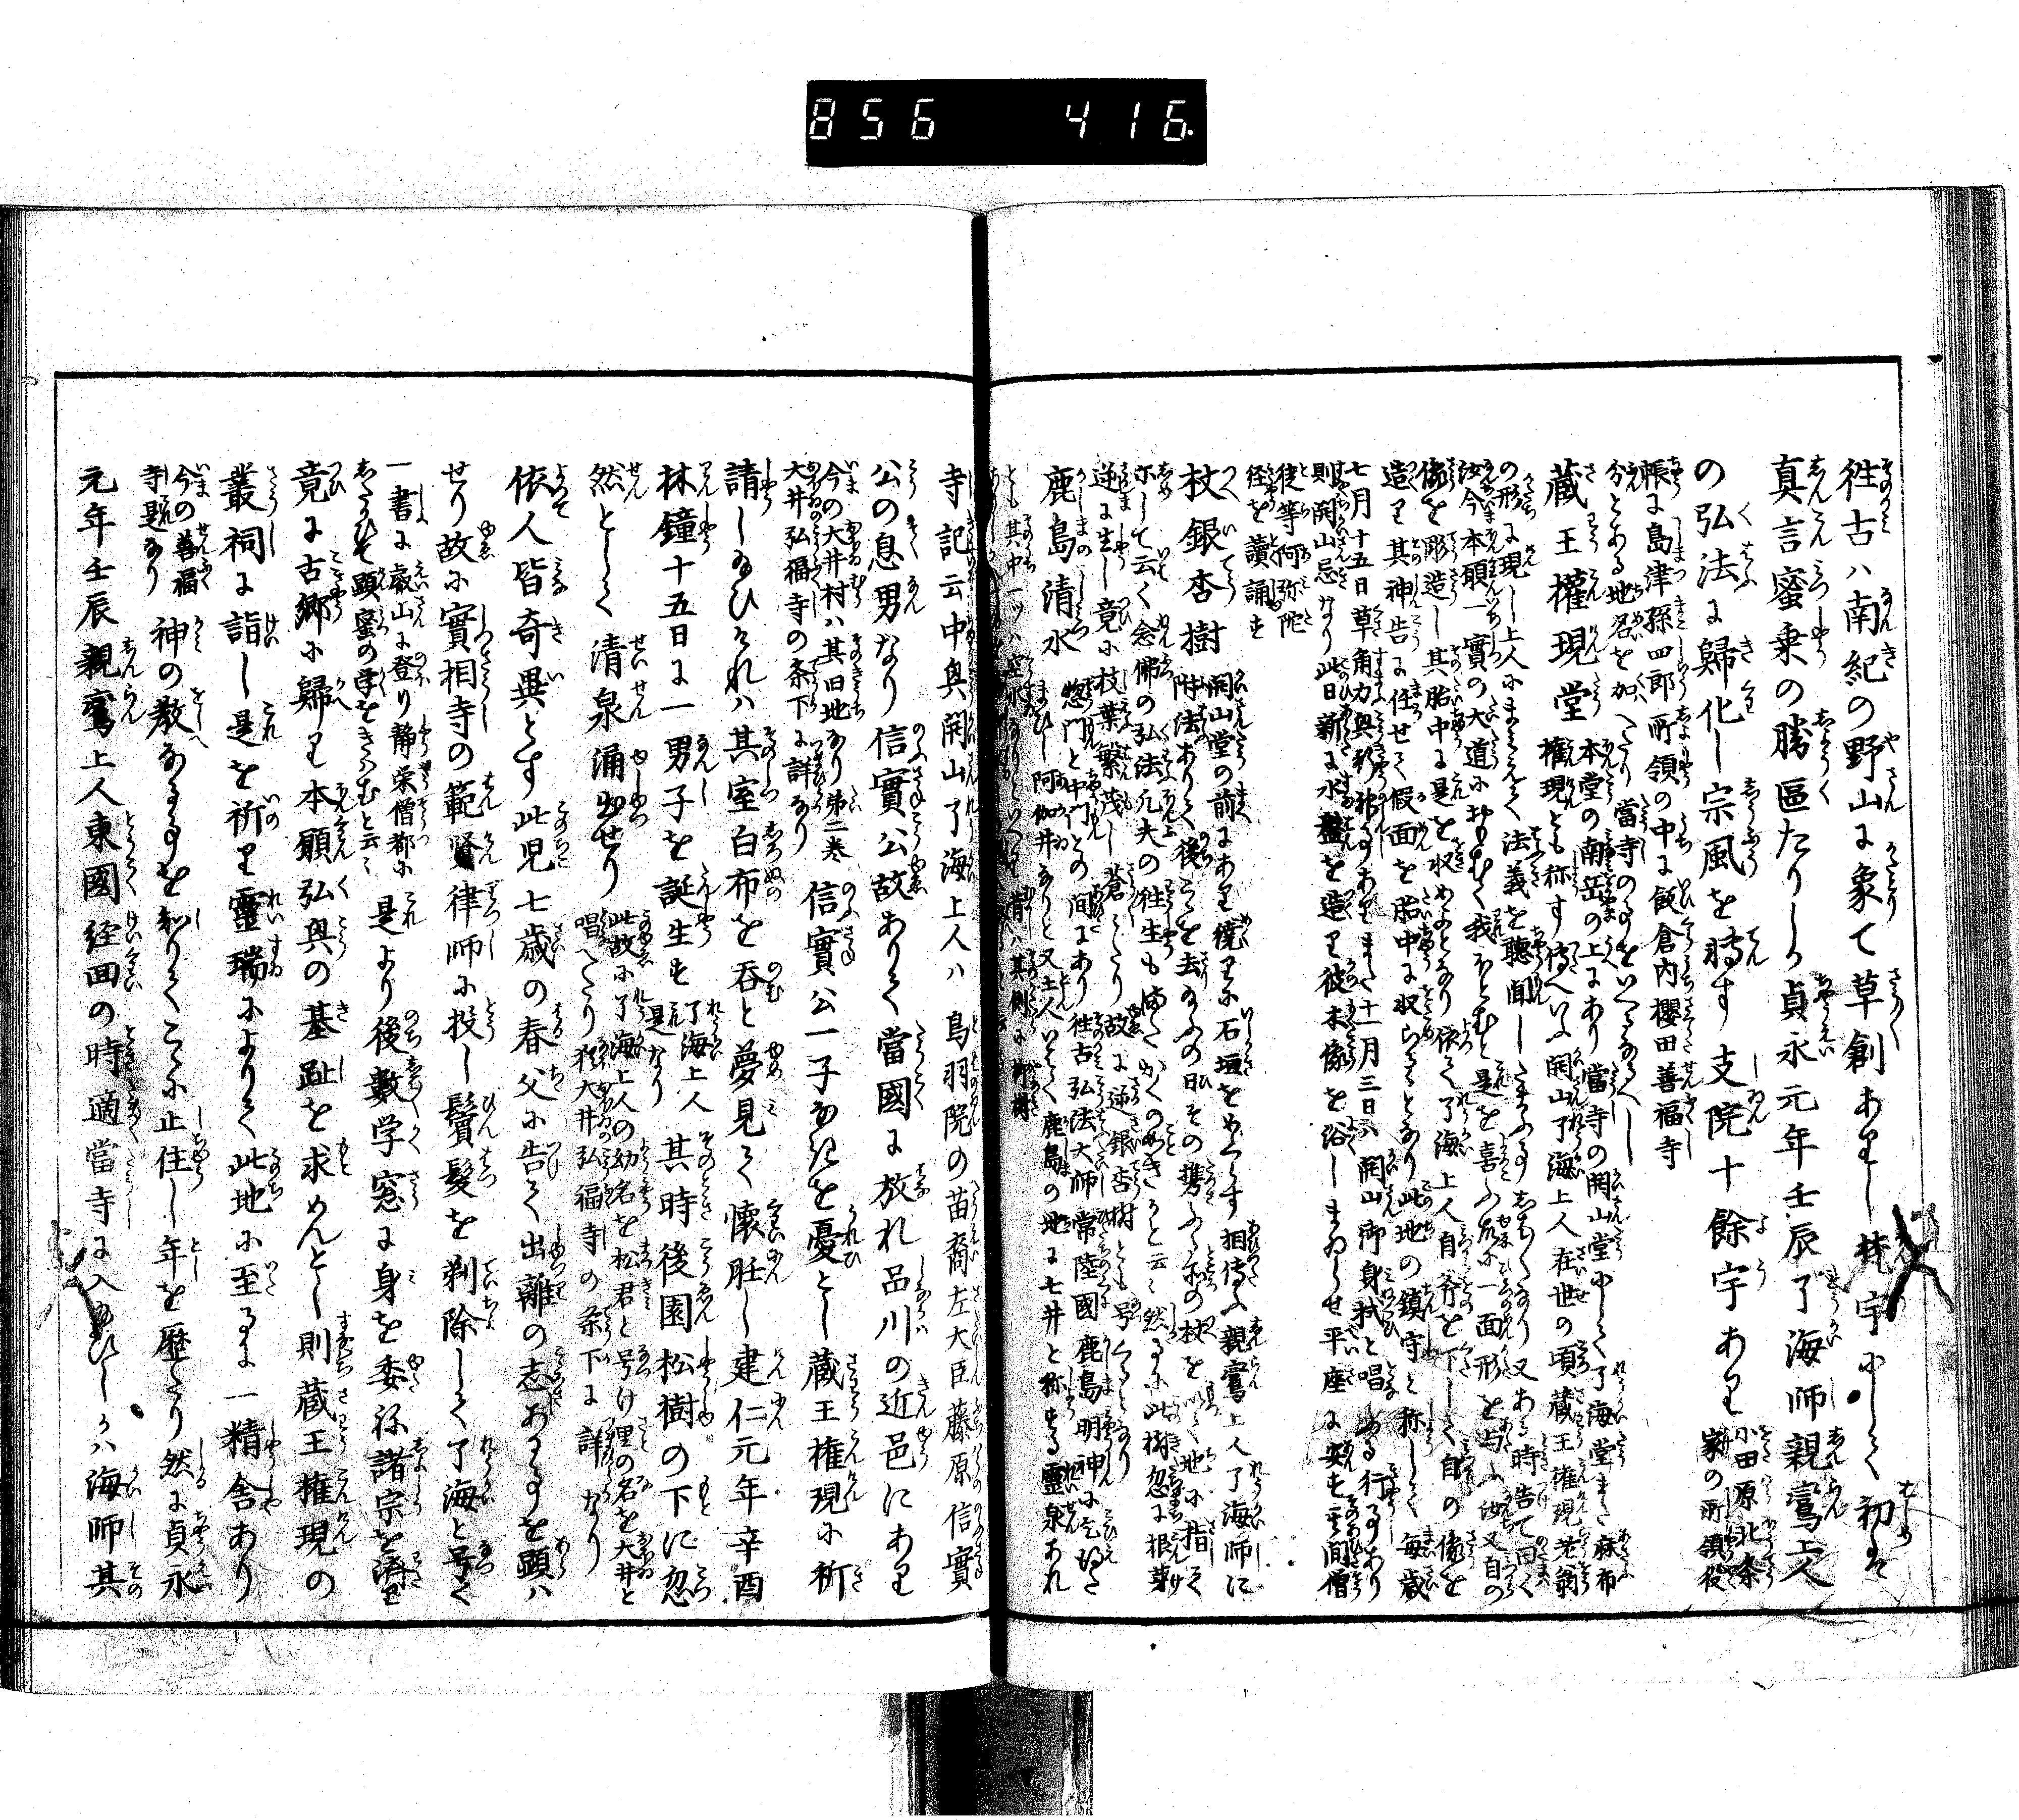 856 416
往古ハ南紀の野山に象て草創ありし梵宇にして初は
真言蜜乗の勝區たりしか貞永元年壬辰了海師親鸞上人
の弘法に歸化し宗風を轉す支院十餘宇あり
小田原北条
家の所領役
帳に島津孫四郎所領の中に飯倉内櫻田善福寺
分とある地名を加へたり當寺の事をいへるなるへし
蔵王權現堂
本堂の南岳の上にあり當寺の開山堂にして了海堂また麻布
權現とも称す傳へいふ開山了海上人在世の頃蔵王權現老翁
の形に現し上人にまみえて法義を聴聞したまふ事しは〱なり又ある時告て曰く
汝今本願一實の大道におもむく我ほとむと是を喜ふ故に一面形を与ふ汝又自の
像を彫造し其胎中に是を収めよとなり依て了海上人自斧を下して自の像を
造り其神告に任せて假面を胎中に収らるゝとなり此地の鎮守と称して毎歳
七月十五日草角力興行神事ありまた十一月三日ハ開山御身拭と唱ふる行事あり
則開山忌なり此日新に水盤を造り彼木像を浴しまゐらせ平座に安を其間僧
徒等阿弥陀
経を讀誦を
杖銀杏樹
開山堂の前にあり繞りに石垣をめくらす相傳ふ親鸞上人了海師に
附法ありて後こゝを去給ふの日その携ふる所の杖を以て地に指して
示して云く念佛の弘法凡夫の往生もまたかくのことき歟と云々然るに此樹忽に根芽
逆に生し竟に枝葉繁茂し蒼〱たり故に逆銀杏樹とも号くるとなり
鹿島清水
惣門と中門との間にあり往古弘法大師常陸國鹿島明神に乞得た
まひし阿伽井なりと又土人いひて鹿島の地に七井と称する霊泉あれ
とも其中一ツハ空水なりといへり昔ハ其側に柳樹
寺記云中興開山了海上人ハ鳥羽院の苗裔左大臣藤原信實
公の息男なり信實公故ありて當國に放れ品川の近邑にあり
今の大井村ハ其旧地なり第二巻
大井弘福寺の条下に詳なり
信實公一子なきを憂とし蔵王権現に祈
請し給ひけれハ其室白布を呑と夢見て懐妊し建仁元年辛酉
林鐘十五日に一男子を誕生を
了海上人
是なり
其時後園松樹の下に忽
然として清泉涌出せり
此故に了海上人の幼名を松君と号け里の名を大井と
唱へたり猶大井弘福寺の条下に詳なり
依人皆奇異とす此児七歳の春父に告て出離の志ある事を顕ハ
せり故に實相寺の範賢律師に投し鬢髪を剃除して了海と号く
一書に叡山に登り静栄僧都に
したかひて顕蜜の学をきはむと云々
是より後數学窓に身を委ね諸宗を濟り
竟に古郷に歸り本願弘興の基趾を求めんとし則蔵王権現の
叢祠に詣し是を祈り靈瑞によりて此地に至るに一精舎あり
今の善福
寺是なり
神の教なる事を知りてこゝに止住し年を歴たり然に貞永
元年壬辰親鸞上人東國経回の時適當寺に入給ひしかハ海師其